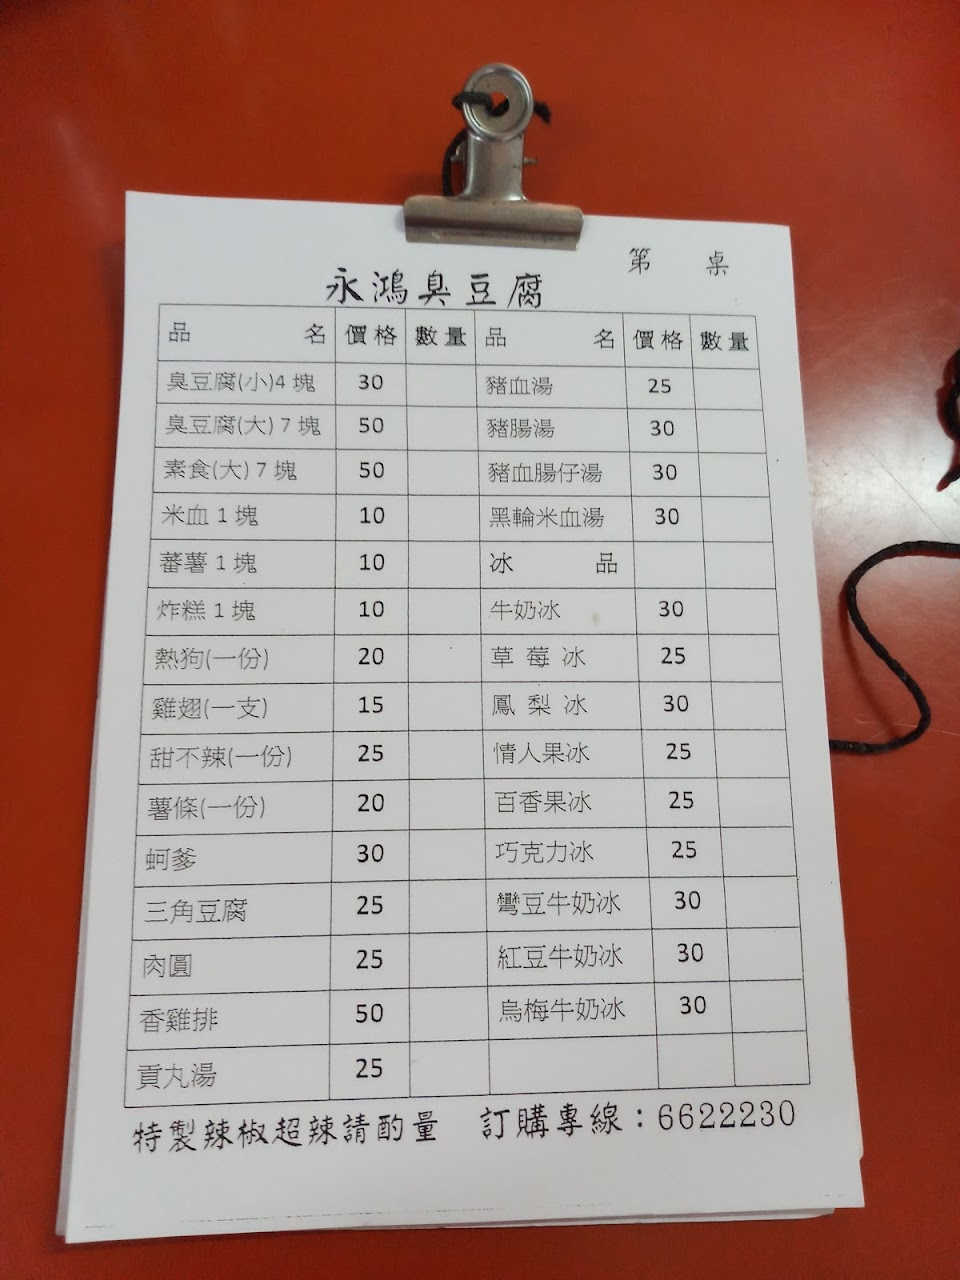 第 桌
永鴻臭豆腐
品 名 價格 數量 品 名 價格 數量
臭豆腐(小)4 塊 30 豬血湯 25
臭豆腐(大) 7 塊 50 豬腸湯 30
素食(大) 7 塊 50 豬血腸仔湯 30
米血 1 塊 10 黑輪米血湯 30
蕃薯 1 塊 10 冰 品
炸糕 1 塊 10 牛奶冰 30
熱狗(一份) 20 草 莓 冰 25
雞翅(一支) 15 鳳 梨 冰 30
甜不辣(一份) 25 情人果冰 25
薯條(一份) 20 百香果冰 25
蚵爹 30 巧克力冰 25
三角豆腐 25 彎豆牛奶冰 30
肉圓 25 紅豆牛奶冰 30
香雞排 50 烏梅牛奶冰 30
貢丸湯 25
特製辣椒超辣請酌量 訂購專線：6622230